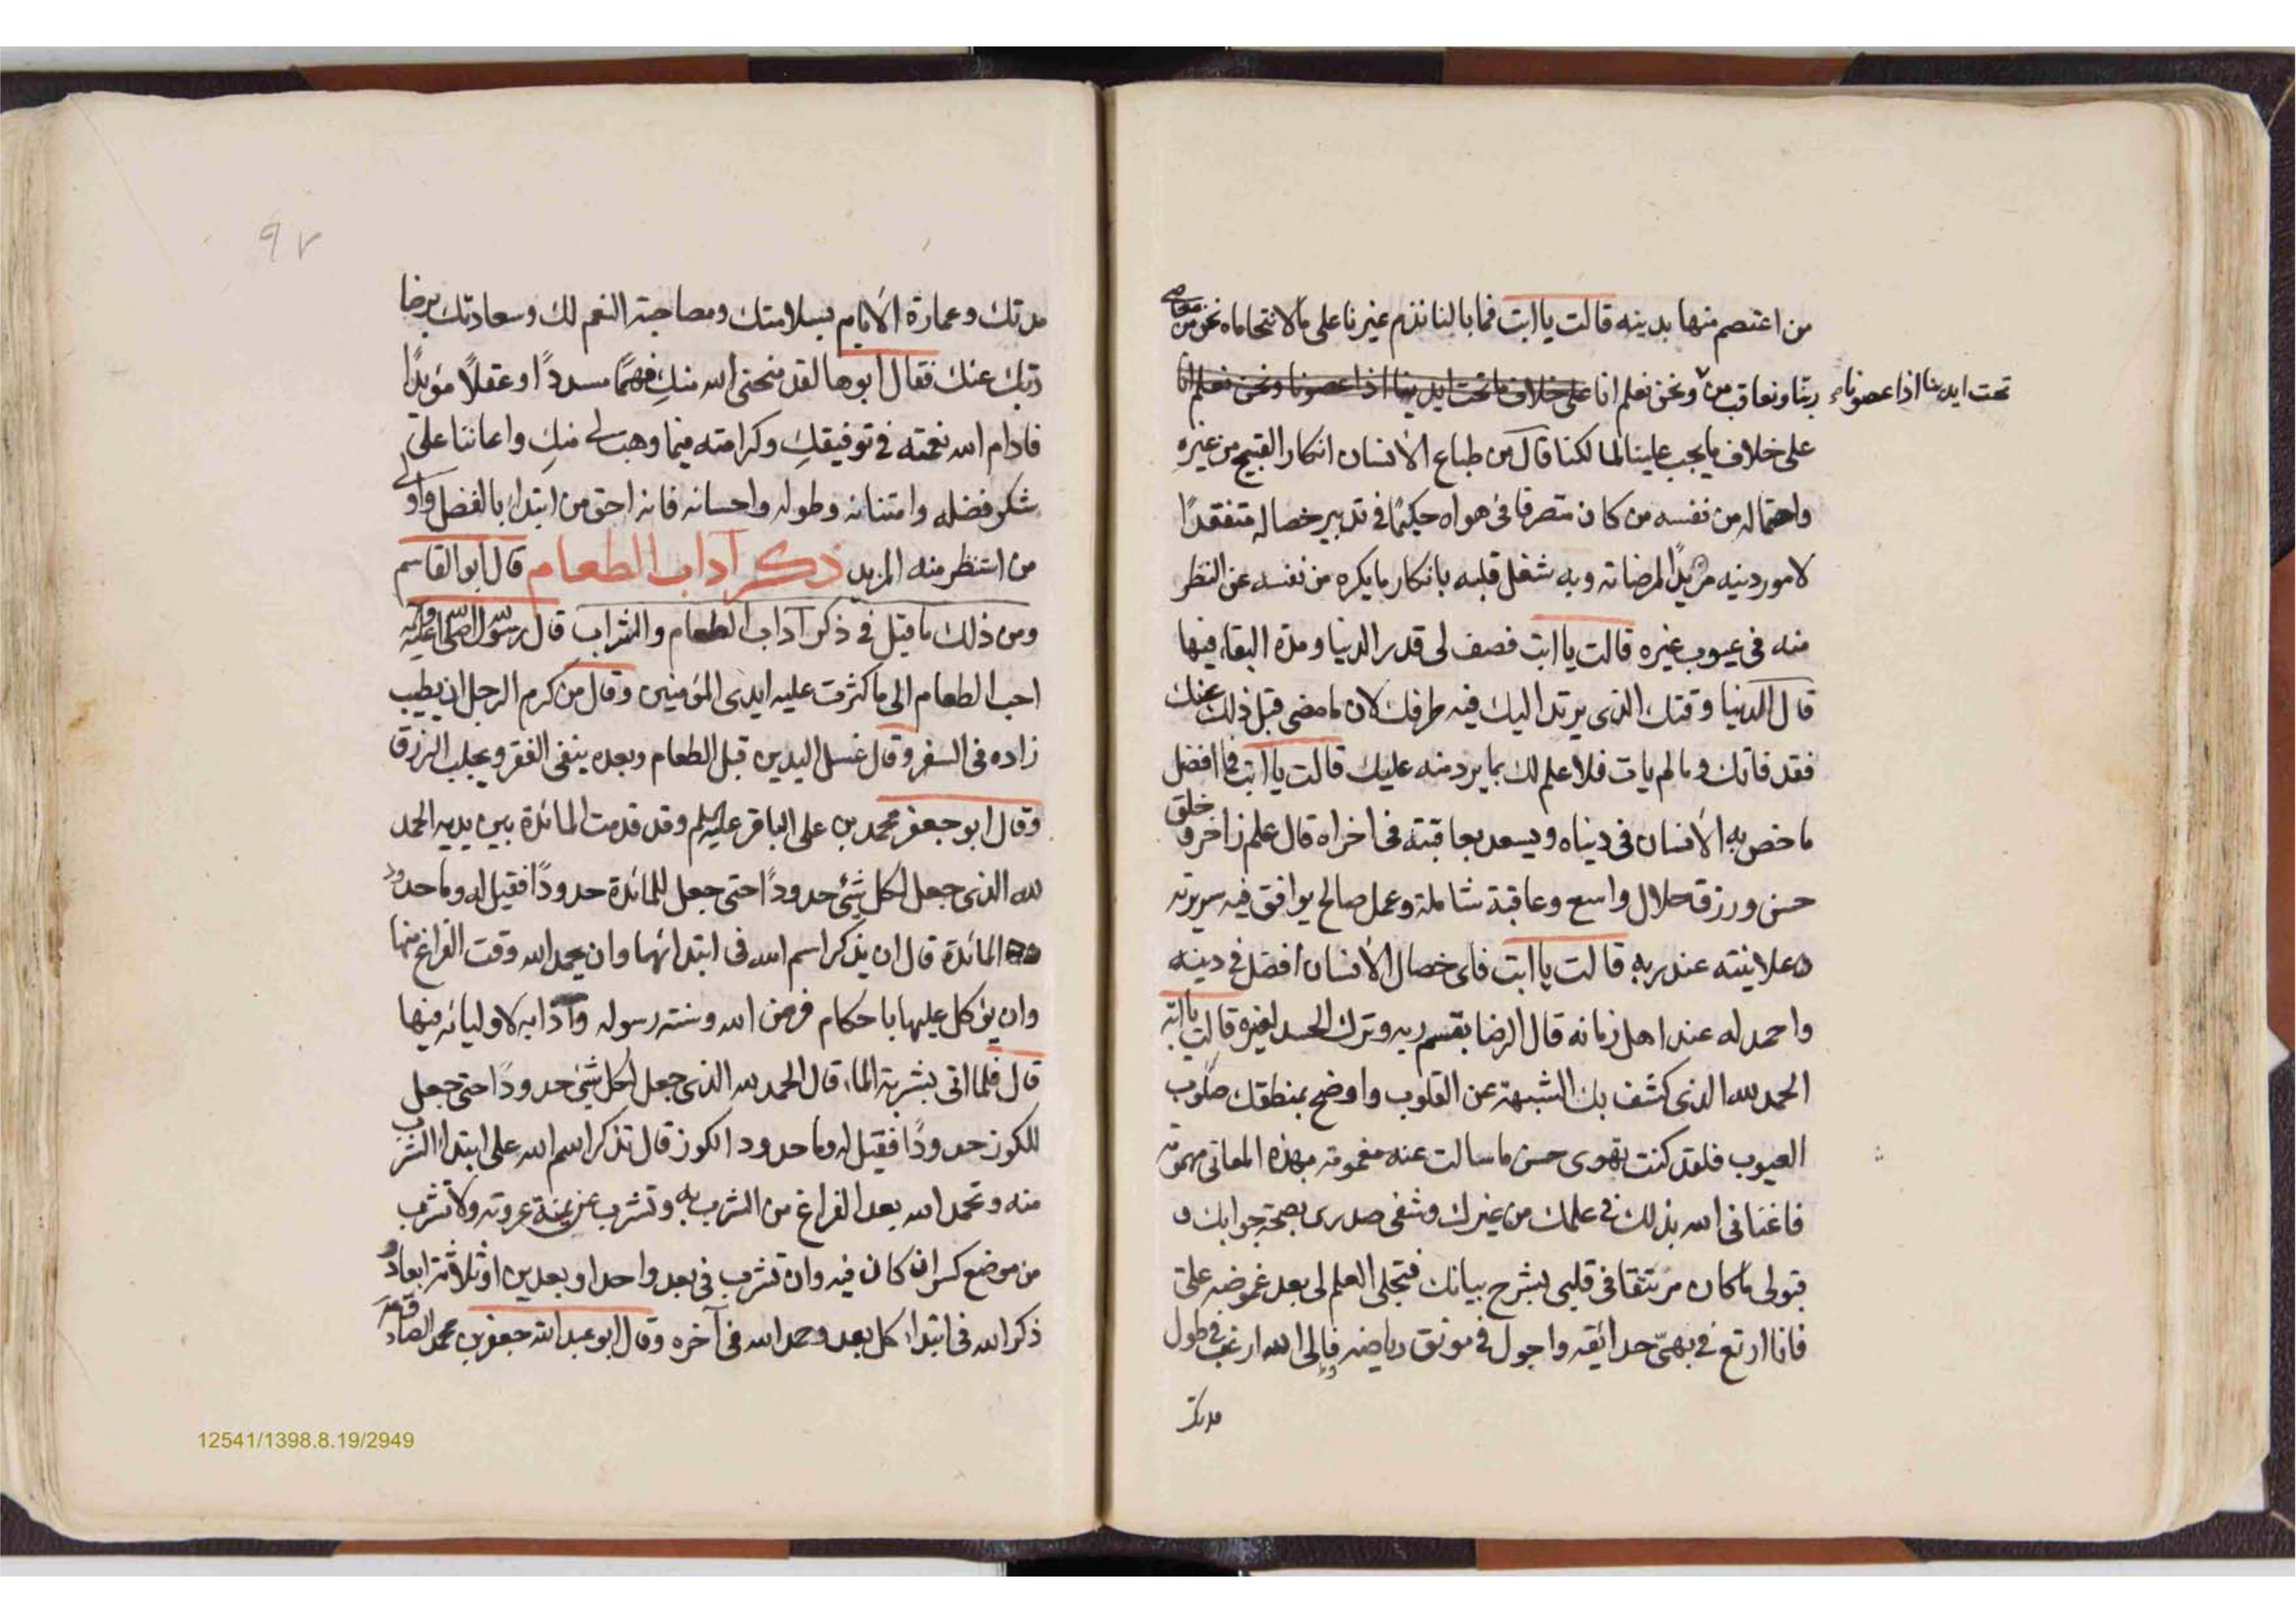 من اعتصم منها بدينه قالت يا ابت فما بالنا نذم غيرنا على ما لا نتحاماه نحن من معاصى
ربنا ونعاقب من ونحن نعلم انا على خلاف ما تحت ايدينا اذا عصونا ونحن نعلم انا
تحت ايدينا اذا عصونا
على خلاف ما يجب علينا لمالكنا قال من طباع الأنسان انكار القبيح من غيره
واحتماله من نفسه من كان متصرفا فى هواه حكيمًا فى تدبير خصاله متفقدًا
لامور دينه مريدًا لمرضاته وبه شغل قلبه بانكار ما يكره من نفسه عن النظر
منه فى عيوب غيره قالت يا ابت فصف لى قدر الدنيا ومدة البقاء فيها
قال الدنيا وقتك الذى يرتد اليك فيه طرفك لان ما مضى قبل ذلك عنك
فقد فاتك وما لم يات فلا علم لك بما يرد منه عليك قالت يا ابت فما افضل
ما خص به الأنسان فى دنياه ويسعد بعاقبته فى اخراه قال علم زاخر و خلق
حسن ورزق حلال واسع وعاقبة شاملة وعمل صالح يوافق فيه سريرته
وعلانيته عند ربه قالت يا ابت فاى خصال الأنسان افضل فى دينه
واحمد له عند اهل زمانه قال الرضا بقسم ربه وترك الحسد لغيره قالت يا ابة
الحمد لله الذى كشف بك الشبهة عن القلوب واوضح بمنطقك
العيوب فلقد كنت بقوى حسن ما سالت عنه مغمومة بهذه المعانى مهمومة
فاغنانى الله بذلك فى علمك من غيرك وشفى صدرى بصحة جوابك و
ما كان مرتتقا فى قلبى بشرح بيانك فتجلى العلم لى بعد غموضه علىّ
فانا ارتع فى بهىّ حدائقه واجول فى مونق رياضه والى الله ارغب فى طول
مدتك
٩٢
مدتك وعمارة الأيام بسلامتك ومصاحبة النعم لك وسعادتك برضا
ربك عنك فقال ابوها لقد منحنى الله منكِ فهمًا مسددًا وعقلًا مؤيدًا
فادام الله نعمته فى توفيقكِ وكرامته فيما وهب لى منكِ واعاننا على
شكر فضله وامتنانه وطوله واحسانه فانه احق من ابتدا بالفضل واولى
من استنظر منه المزيد ذكر آداب الطعام قال ابو القاسم
ومن ذلك ما قيل فى ذكر آداب الطعام والشراب قال رسول الله صلى الله عليه وآله
احب الطعام الى ما كثرت عليه ايدى المؤمنين وقال من كرم الرجل ان يطيب
زاده فى السفر وقال غسل اليدين قبل الطعام وبعده ينفى الفقر ويجلب الرزق
وقال ابو جعفر محمد بن على الباقر عليه السلم وقد قدمت المائدة بين يديه الحمد
لله الذى جعل لكل شئ حدودًا حتى جعل للمائدة حدودًا فقيل له وما حدود
المائدة قال ان يذكر اسم الله فى ابتدائها وان يحمد الله وقت الفراغ منها
وان يؤكل عليها باحكام فرض الله وسنة رسوله وآدابه لاوليائه فيها
قال فلما اتى بشربة الماء قال الحمد لله الذى جعل لكل شئ حدودًا حتى جعل
للكوز حدودًا فقيل له وما حدود الكوز قال تذكر اسم الله على ابتداء الشرب
منه وتحمد الله بعد الفراغ من الشرب به وتشرب عن يمنة عروته ولا تشرب
من موضع كسر ان كان فيه وان تشرب فى بعد واحد او بعدين او ثلاثة ابعاد و
ذكر الله فى ابتداء كل بعد وحمد الله فى آخره وقال ابو عبد الله جعفر بن محمد الصادق
12541/1398.8.19/2949